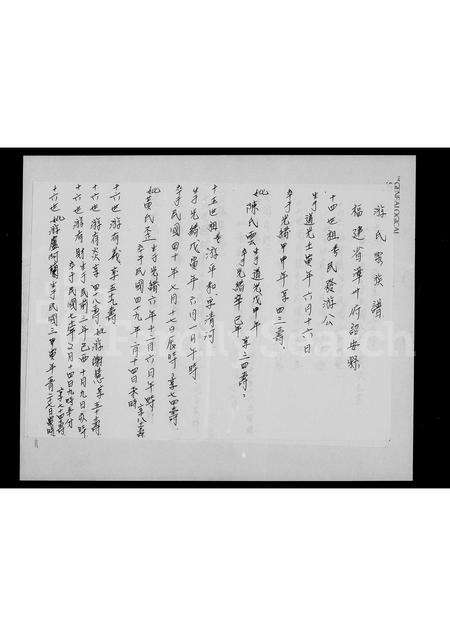 游氏宗族譜
福建省漳州府詔安縣
十四世祖考民發游公
生于道光壬寅年六月十六日
卒于光緒甲申年享四三壽.
妣陳氏雲生于道光戊申年
卒于光緒辛巳年享三四壽.
十五世祖考游年和字清河
生于光緒戊寅年六月一日午時
卒于民國四十年七月十七日辰時享七四壽.
妣黃氏丕生于光緒六年十二月六日午時
卒于民國四九年二月十四日未時享八一壽
十六世游有義享三九壽
十六世游有炎享四八壽妣游謝慧享五十壽
十六世游有財生于民前二年己酉十月九日辰時
卒于民國年二月十四日九時
十六世妣游盧阿蘭生于民國
GENEALOGICAL
FamilySearch